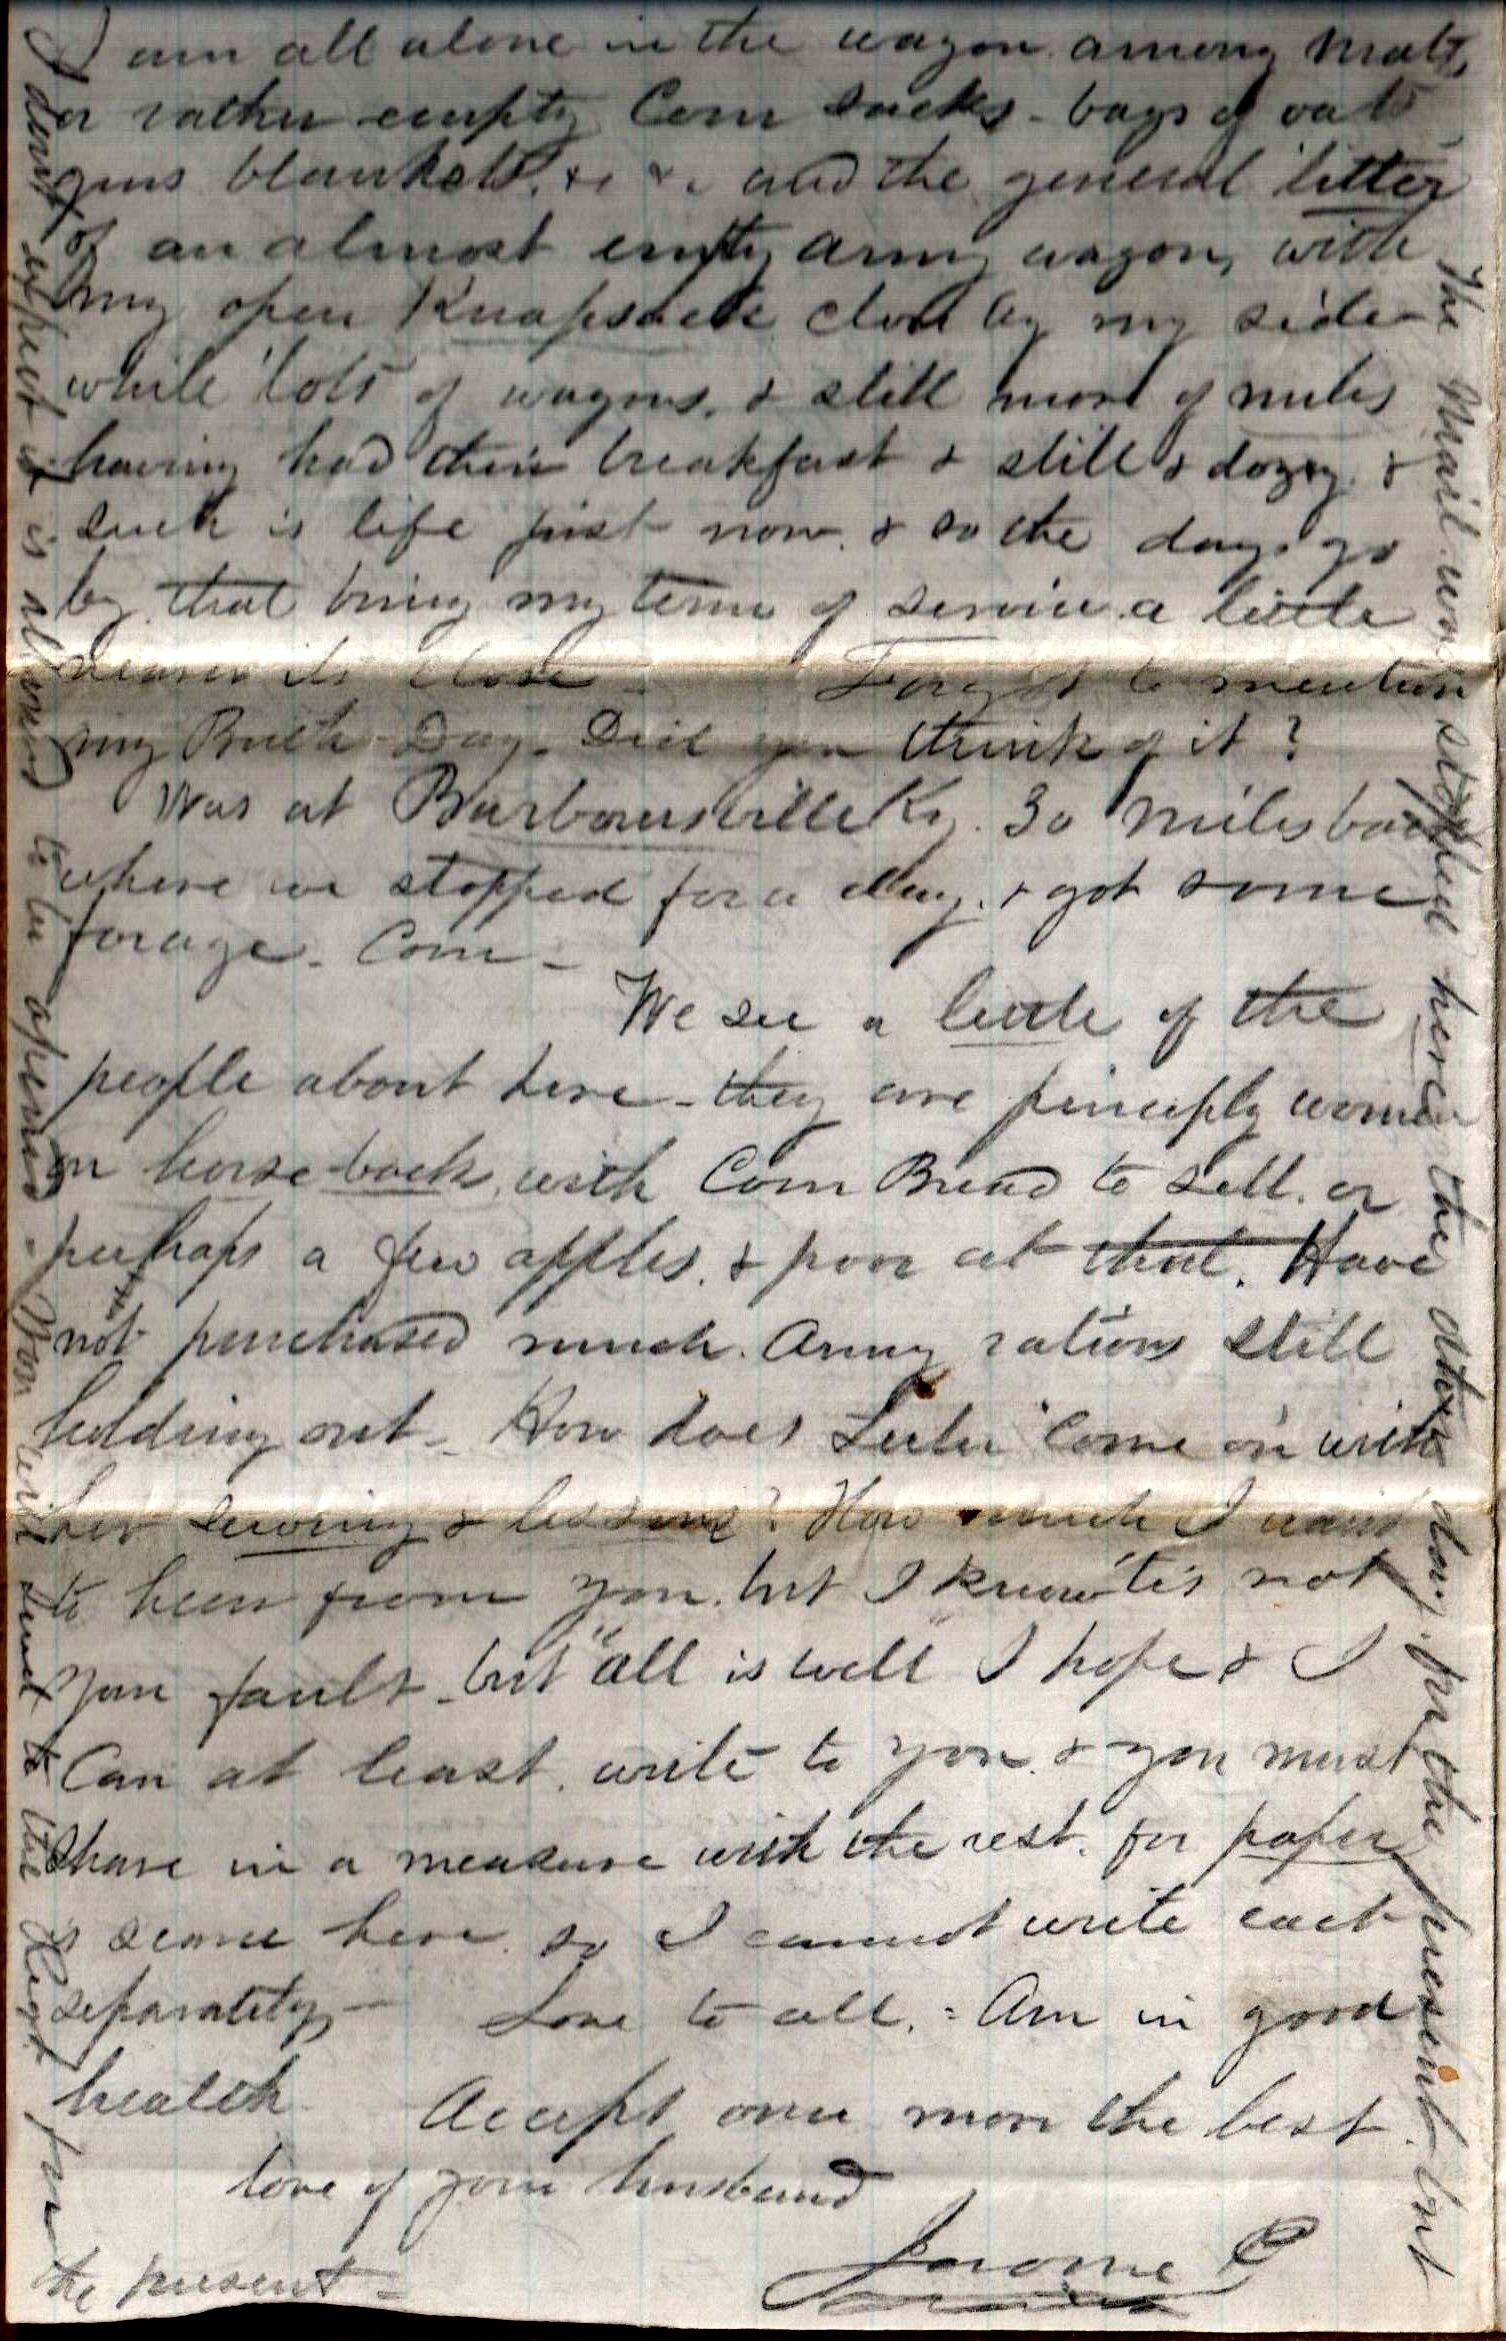 I am all alone in the wagon among
or rather empty Corn sacks - bags of oats
guns blankets. &c &c and the general litter
of an almost empty army wagon, with
my open Knapsack close by my side
while lots of wagons, & still more of mules
having had their breakfast & still & dozy &
such is life just now. & so the days go
by that bring my term of service a little
nearer its close - Forgot to mention
my Birth-Day. Did you think of it?
Was at Barboursville Ky. 30 miles back
where we stopped for a day. & got some
forage. Corn -
We see a little of the
people about here - they are principly women
on horseback, with Corn Bread to sell. or
perhaps a few apples. & poor at that. Have
not purchased much. Army rations still
holding out - How does come on with
her sewing & lessons? How much I want
to hear from you. but I know 'tis not
your fault - but "all is well" I hope & I
Can at least. write to you. & you must
share in a measure with the rest. for paper
is scarce here. so I cannot write each
separately - Love to all. - Am in good
health Accept once more the best
love of your husband
Jerome
The Mail was stopped here the other day. for the present but
I dont expect it is allowed to be opened - You will direct to the Regt for
the present -